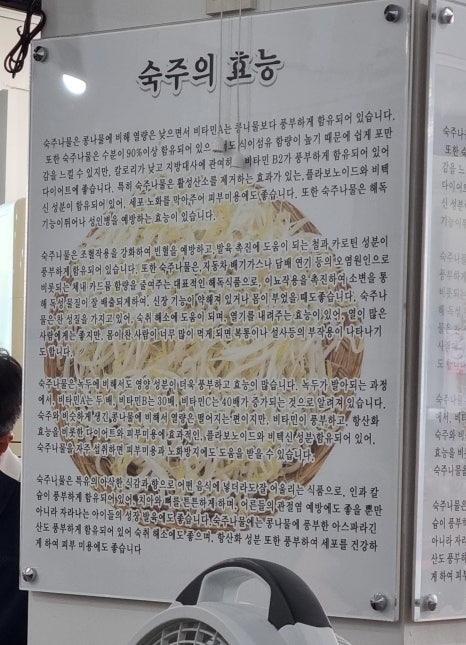 숙주의 효능
숙주나물은 콩나물에 비해 열량은 낮으면서 비타민A는 콩나물보다 풍부하게 함유되어 있습니다.
또한 숙주나물은 수분이 90%이상 함유되어 있으 식이섬유 함량이 높기 때문에 쉽게 포만
감을 느낄 수 있지만, 칼로리가 낮고 지방대사에 관여하 비타민 B2가 풍부하게 함유되어 있어
다이어트에 좋습니다. 특히 숙주나물은 활성산소를 제거하는 효과가 있는,플라보노이드와 비텍
신 성분이 함유되어 있어, 세포 노화를 막아주어 피부미용에도 좋습니다. 또한 숙주나물은 해독
기능이뛰어나 성인병을 예방하는 효능이 있습니다.
숙주나물은 조혈작용을 강화하여 빈혈을 예방하고,발육 촉진에 도움이 되는 철과 카로틴 성분이
풍부하게 함유되어 있습니다. 또한 숙주나물은, 자동차 배기가스나 담배 연기 등의 오염원인으로
비롯되는 체내 카드뮴 함량을 낮여주는 대표적인 해독식품으로, 이뇨작용을 촉진하여 소변을 통
해 독성물질이 잘 배출되게하여, 신장 기능이 약해져 있거나 몸이 부었을 때도좋습니다. 숙주나
물은 찬 성질을 가지고 있어, 숙취 해소에 도움이 되며, 열기를 내려주는 효능이 있어, 열이 많은
사람에게는 좋지만, 몸이 찬 사람이 너무 많이 먹게 되면 복통이나 설사등의 부작용이 나타나기
도 합니다.
숙주나물은 녹두에 비해서도 영양 성분이 더욱 풍부하고 효능이 많습니다. 녹두가 발아되는 과정
에서, 비타민A는 두배, 비타민B는 30배, 비타민C는 40배가 증가되는 것으로 알려져 있습니다.
숙주와 비슷하게 생긴 콩나물에 비해서 열량은 떨어지는 편이지만, 비타민이 풍부하고, 항산화
효능을 비롯한 다이어트와 피부미용에 효과적인, 플라보노이드와 비텍신 성분 함유되어 있어,
숙주나물을 자주 섭취하면 피부미용과 노화방지에도 도움을 받을 수 있습니다.
숙주나물은 특유의 아삭한 식감과 향으로 어떤 음식에 넣더라도 잘 어울리는 식품으로, 인과 칼
슘이 풍부하게 함유되어 있어, 치아와 뼈를 튼튼하게 하며, 어른들의 관절염 예방에도 좋을 뿐만
아니라 자라나는 아이들의 성장 발육에도 좋습니다. 숙주나물에는 콩나물에 풍부한 아스파라긴
산도 풍부하게 함유되어 있어 숙취 해소에도 좋으며, 항산화 성분 또한 풍부하여 세포를 건강하
게 하여 피부 미용에도 좋습니다